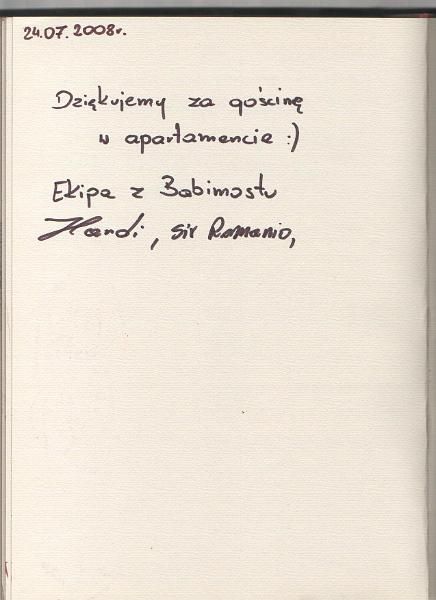 24.07.2008r.
Dziękujemy za gościnę
w apartamencie :)
Ekipa z Babimostu
Handi, Sir Romanio,